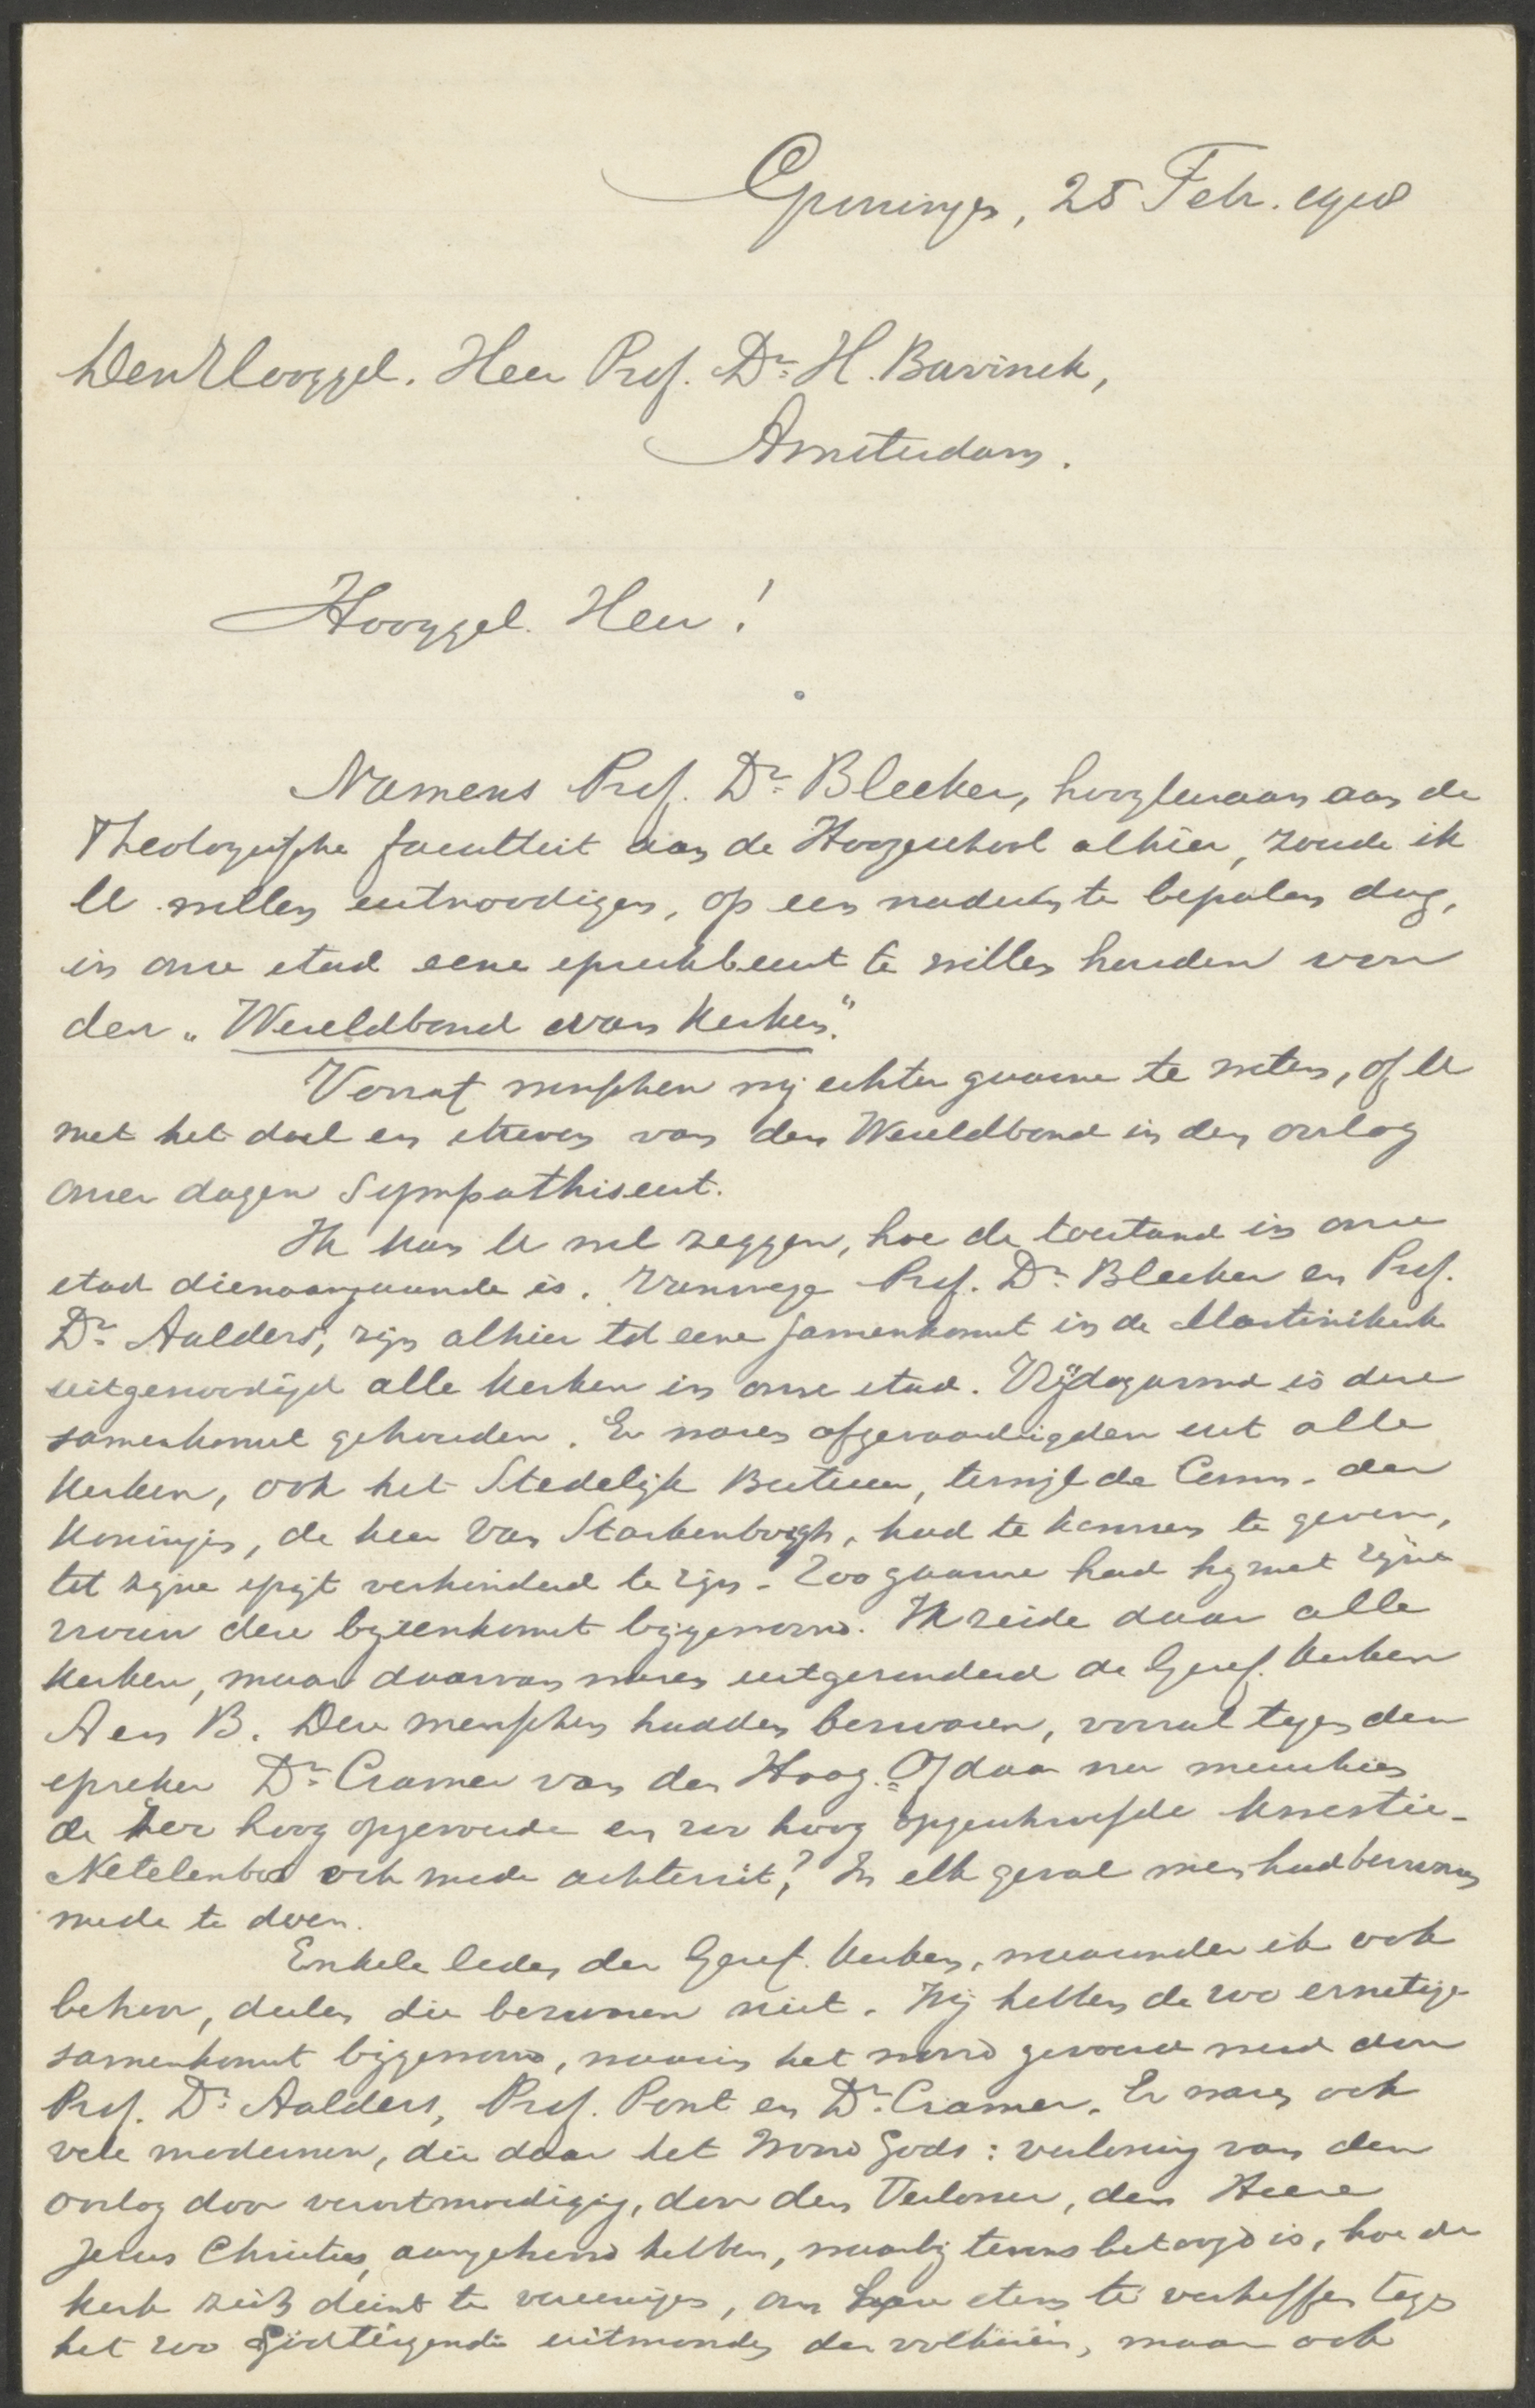 Groningen, 25 Febr. 1918
Den Hooggel. Heer Prof. Dr. H. Bavinck,
Amsterdam.
Hooggel. Heer!
Namens Prof. Dr. Bleeker, hoogleeraar aan de
Theologische faculteit aan de Hoogeschool alhier, zoude ik
U willen uitnoodigen, op een nader te bepalen dag,
in onze stad eene spreekbeurt te willen houden voor
den "Wereldbond van Kerken".
Vooraf wenschen wij echter gaarne te weten, of U
met het doel en streven van den Wereldbond in den oorlog
onzer dagen sympathiseert.
Ik kan U wel zeggen, hoe de toestand in onze
stad dienaangaande is. Vanwege Prof. Dr. Bleeker en Prof.
Dr. Aalders, zijn alhier tot eene samenkomst in de Martinikerk
uitgenoodigd alle kerken in onze stad. Vrijdagavond is deze
samenkomst gehouden. Er waren afgevaardigden uit alle
kerken, ook het Stedelijk Bestuur, terwijl de Comm. der
Koningin, de heer Van Starkenborgh, had te kennen te geven,
tot zijne spijt verhinderd te zijn. Zoo gaarne had hij met zijne
vrouw deze bijeenkomst bijgewoond. Ik zeide daar alle
kerken, maar daarvan waren uitgezonderd de Geref. Kerken
A en B. Deze menschen hadden bezwaren, vooral tegen den
spreker Dr. Cramer van den Haag. Of daar nu misschien
de zeer hoog opgevoerde en zoo hoog opgeschroefde kwestie-
Netelenbos ook mede achterzit? In elk geval men had bezwaren
mede te doen.
Enkele leden der Geref. Kerken, waaronder ik ook
behoor, deelen die bezwaren niet. Wij hebben de zoo ernstige
samenkomst bijgewoond, waarin het woord gevoerd werd door
Prof. Dr. Aalders, Prof. Pont en Dr. Cramer. Er waren ook
vele modernen, die daar het Woord Gods: verlossing van den
oorlog door verootmoediging, door den Verlosser, den Heere
Jezus Christus, aangehoord hebben, waarbij tevens betoogd is, hoe de
kerk zich dient te vereenigen, om haar stem te verheffen tegen
het zoo Godtergende uitmoorden der volkeren, maar ook